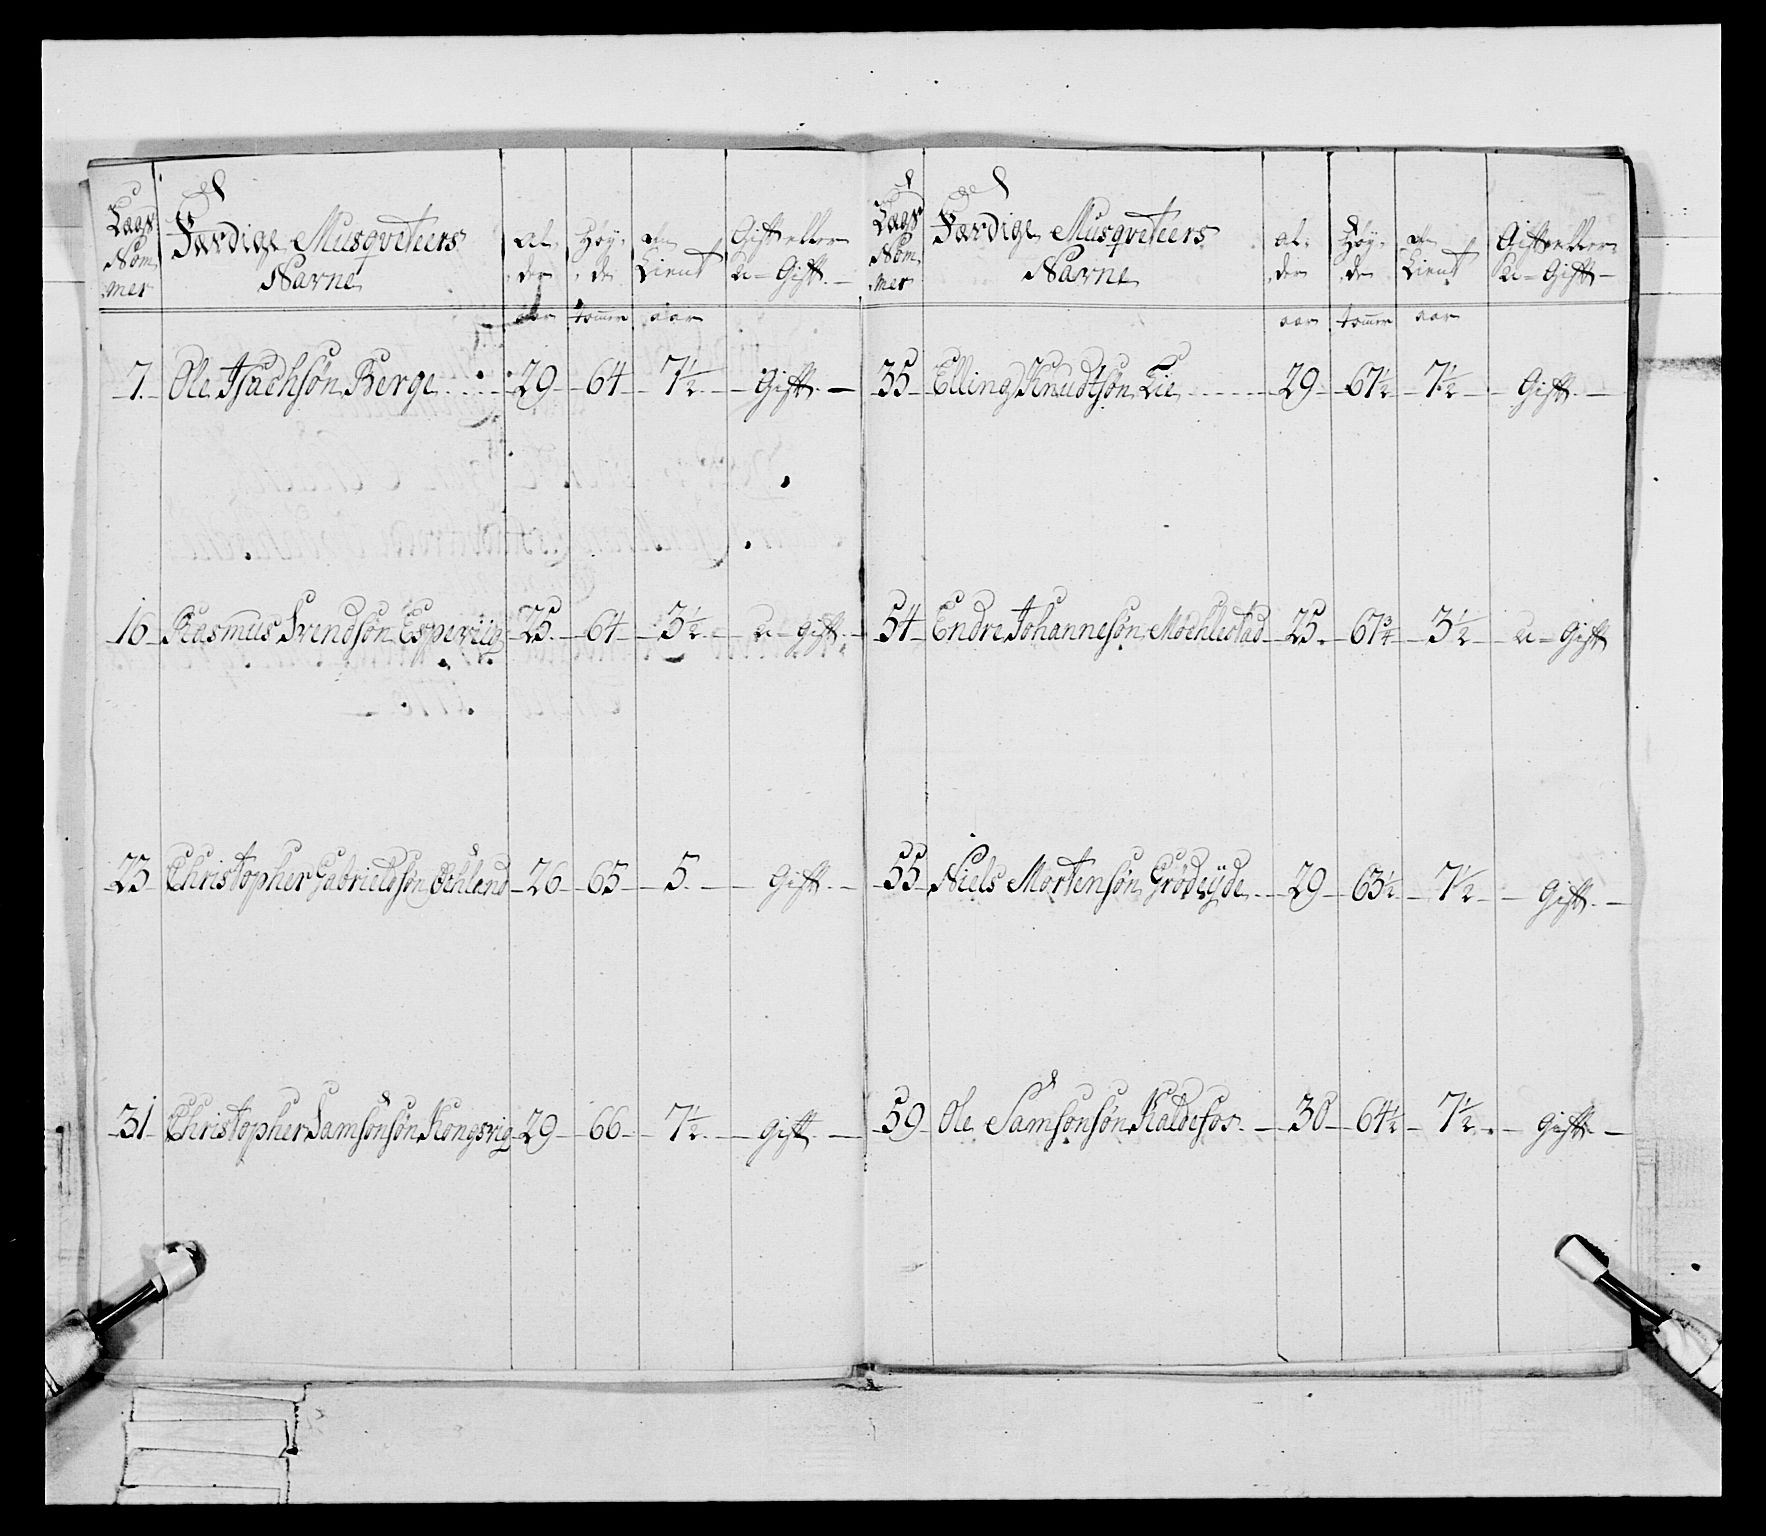 Lægs Nom mer | Færdige Musqveteers Navne | Al- der | Høy- de | Tient | Gift eller U-Gift
aar | tomer | aar
7. Ole Isachsøn Berge 29 64 7½ Gift
16 Rasmus Svendsøn Espeviig 25 64 3½ U-Gift
25 Christopher Gabrielssøn Øehland 26 65 5 Gift
31 Christopher Samsonsøn Kongsvig 29 66 7½ Gift
Lægs Nom mer | Færdige Musqveteers Navne | Al- der | Høy- de | Tient | Gift eller U-Gift
aar | tomer | aar
35 Elling Knudtsøn Lie 29 67½ 7½ Gift
54 Endre Johannesøn Møehlestad 25 67¾ 3½ U-Gift
55 Niels Mortensøn Grødeÿde 29 63½ 7½ Gift
59 Ole Samsonsøn Kaldefos 30 64½ 7½ Gift